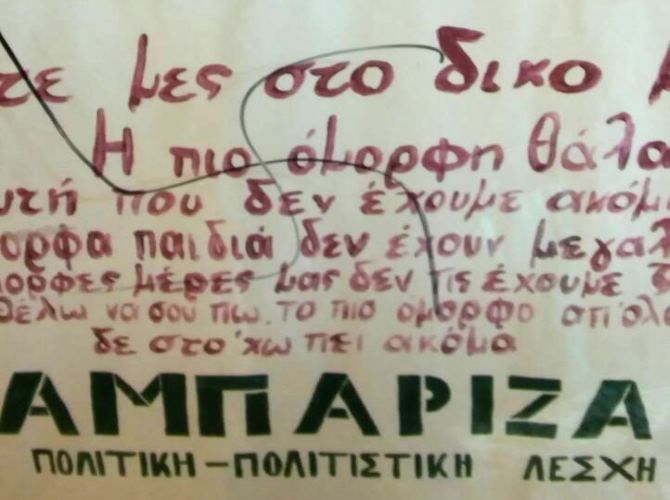 τε μες στο δικο
Η πιο όμορφη θάλα
υτή που δεν έχουμε ακόμ
ορφα παιδιά δεν έχουν μεγαλ
μορφες μέρες μας δεν τις έχουμε
θέλω να σου πω. το πιο όμορφο απ' όλα
δε στο 'χω πει ακόμα
ΑΜΠΑΡΙΖΑ
ΠΟΛΙΤΙΚΗ - ΠΟΛΙΤΙΣΤΙΚΗ ΛΕΣΧΗ